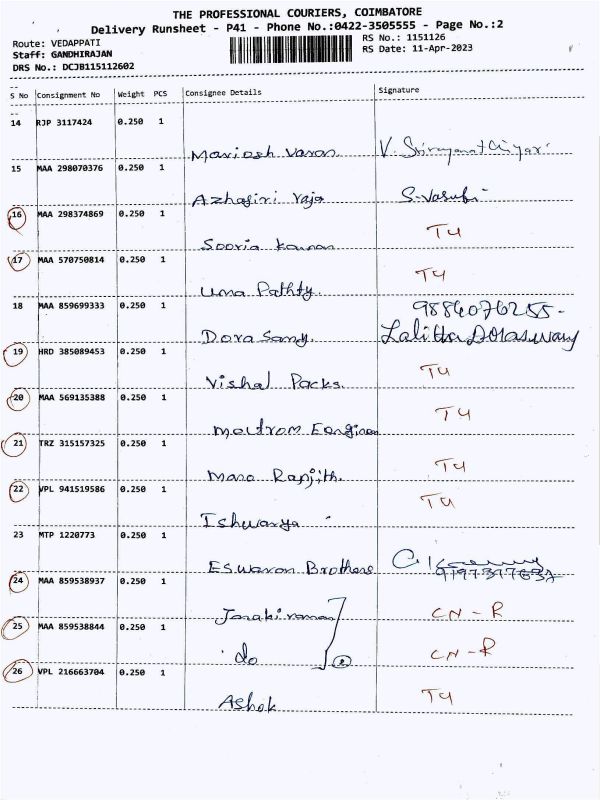 THE PROFESSIONAL COURIERS, COIMBATORE
Delivery Runsheet - P41 - Phone No.:0422-3505555 - Page No.:2
Route: VEDAPPATI RS No.: 1151126
Staff: GANDHIRAJAN RS Date: 11-Apr-2023
DRS No.: DCJB115112602
S No Consignment No Weight PCS Consignee Details Signature
14 RJP 3117424 0.250 1
V.
15 MAA 298070376 0.250 1
Azhagiri raja S. Vasuki
16 MAA 298374869 0.250 1
Sooria T4
17 MAA 570750814 0.250 1
T4
Uma Pathty.
18 MAA 859699333 0.250 1 9884076255-
Dora Samy. Lalitha Doraswamy
19 HRD 385089453 0.250 1
T4
Vishal Packs.
20 MAA 569135388 0.250 1
T4
21 TRZ 315157325 0.250 1
T4
Mano Ranjith.
22 VPL 941519586 0.250 1
T4
Ishwarya
23 MTP 1220773 0.250 1
Eswaran Brothers
24 MAA 859538937 0.250 1
Janakiraman CN-R
25 MAA 859538844 0.250 1
do 2 CN-R
26 VPL 216663704 0.250 1
Ashok T4